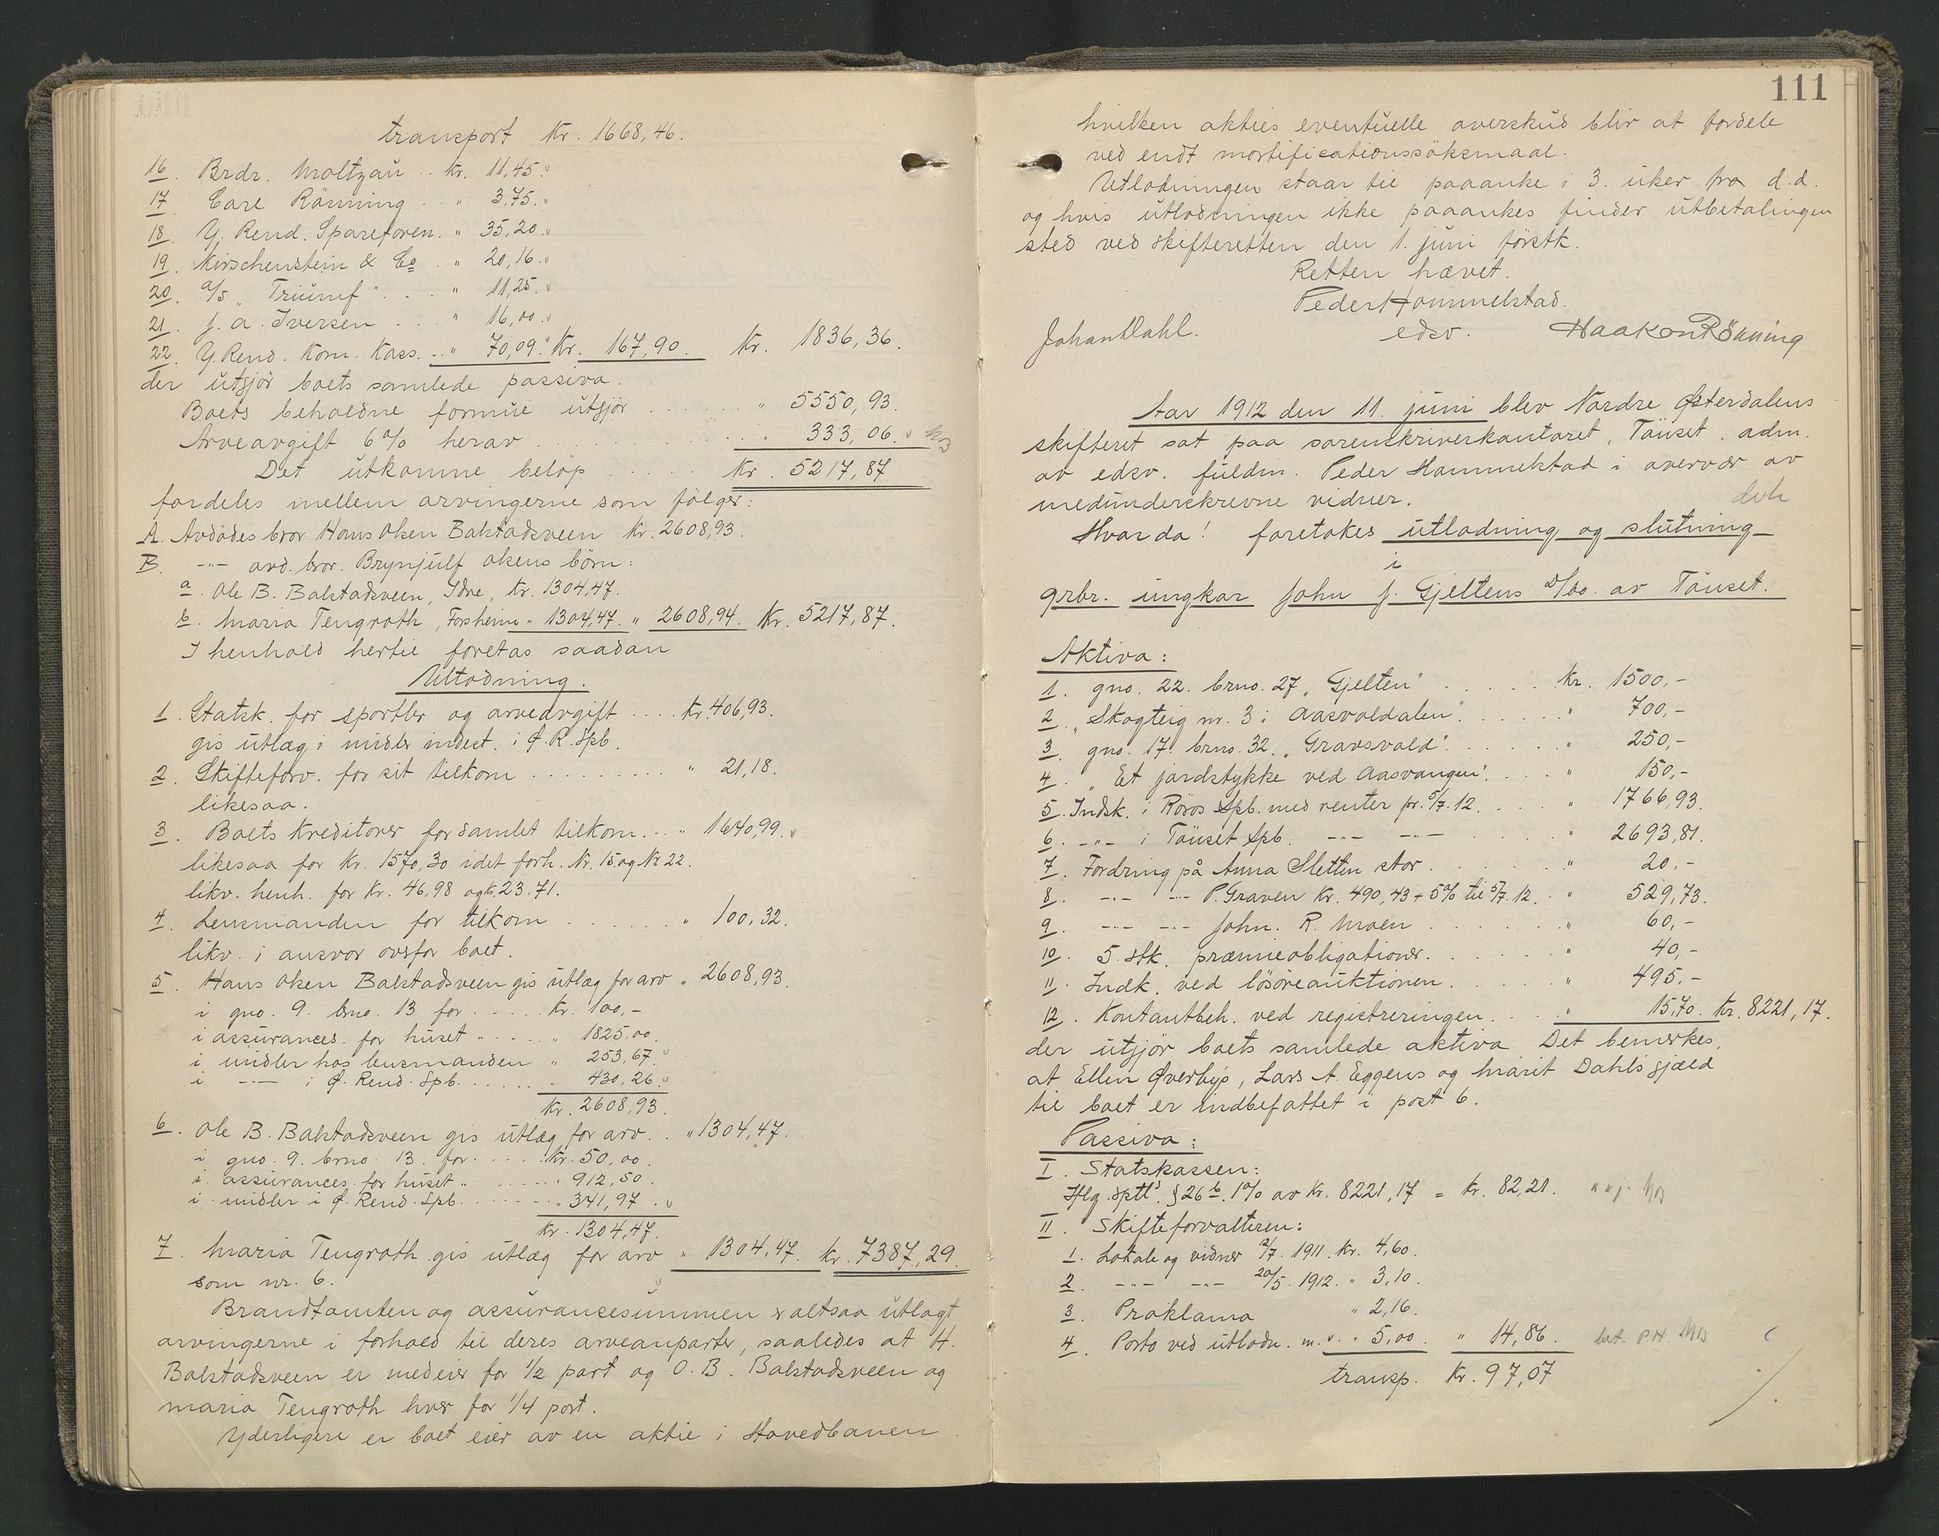 transport Kr. 1668,46.
16. Brdr. Moltzau .. Kr. 11,45.
17 Carl Rönning . . . " 3,75.
18. Y. Rend. Spareforen. " 35,20.
19. Kirschenstein & Co . " 20,16.
20. A/S "Triumf" . . . " 11,25.
21. J. A. Iversen . . . " 16,00.
22. Y. Rend. Kom. Kass. .. " 70,09. Kr. 167,90. Kr. 1836,36.
der utgjör boets samlede passiva.
Boets beholdne formue utgjör . . . . . " 5550,93.
Arveavgift 6% herav . . . . . . . " 333,06.
Det utkomne belöp . . . . . Kr. 5217,87
fordeles mellem arvingerne som fölger:
A. Avdödes bror Hans Oken Bakstadsveen Kr. 2608,93.
B. -"- avd. bror. Brynjulf Okens börn:
a. Ole B. Bakstadsveen, Idre, Kr. 1304,47.
b. Maria Tengroth, Forsheim " 1304,47. " 2608,94. Kr. 5217,87.
I henhold hertil foretas saadan
Utlodning.
1. Statsk. for sportler og arveavgift .... Kr. 406,93.
gis utlæg i midler indest. i Ø. R. Spb.
2. Skifteforv. for sit tilkom . . . . . . . " 21,18.
likesaa.
3. Boets kreditorer for samlet tilkom. .. " 1640,99.
likesaa for Kr. 1570,30 idet forh. Nr. 15 og Nr 22.
likv. henh. for Kr. 46,98 og Kr. 23,71.
4. Lensmanden for tilkom . . . . . . " 100,32.
likv. i ansvar ovfor boet.
5. Hans Oken Bakstadsveen gis utlæg for arv " 2608,93.
i gno. 9. brno. 13 for . . . . . Kr. 100,-
i assurances. for huset " . . . . " 1825,00.
i midler hos lensmanden " 253,67.
i -"- i Ø. Rend. Spb. . . . . . " 430,26.
Kr. 2608,93.
6. Ole B. Bakstadsveen gis utlæg for arv. . " 1304,47.
i gno. 9. brno. 13. for . . . . Kr. 50,00.
i assurances. for huset " . . . . " 912,50.
i midler i Ø. Rend. Spb. . . . . " 341,97.
Kr. 1304,47.
7. Maria Tengroth gis utlæg for arv " 1304,47. Kr. 7387,29.
som nr. 6.
Brandtomten og assurancesummen er altsaa utlagt
arvingerne i forhold til deres arveanparter, saaledes at H.
Bakstadsveen er medeier for 1/2 part og O. B. Bakstadsveen og
Maria Tengroth hver for 1/4 part.
Yderligere er boet eier av en aktie i Hovedbanen
111
hvilken akties eventuelle overskud blir at fordele
ved endt mortificationssöksmaal.
Utlodningen staar til paaanke i 3. uker fra d.d.
og hvis utlodningen ikke paaankes finder utbetalingen
sted ved skifteretten den 1. juni förstk.
Retten hævet.
Peder Hommelstad.
Johan Dahl. edsv. Haakon Rönning
Aar 1912 den 11. juni blev Nordre Østerdalens
skifteret sat paa sorenskriverkontoret, Tönset, adm.
av edsv. fuldm. Peder Hommelstad i overvær av
medunderskrevne vidner.
Hvorda! foretokes utlodning og slutning
i
grbr. ungkar John J. Gjeltens D/bo. av Tönset.
Aktiva:
1. gno. 22. brno. 27 "Gjelten" . . . . . Kr. 1500,-
2 "Skogteig nr. 3 i Aasvoldalen". . . . . " 700,-
3 gno. 17. brno. 32. "Gravsvold". . . . . " 250,-
4. "Et jordstykke ved Aasvangen". . . . " 150,-
5. Indsk. i Röros Spb. med renter pr. 5/7.12. . . . " 1766,93.
6. -"- i Tönset Spb. -"- -"- . . . . " 2693,81.
7. Fordring på Anna Sletten stor. . . . . " 20,-
8. -"- -"- P. Graven Kr. 490,43 + 5% til 5/7.12. . " 529,73.
9. -"- -"- John. R. Moen . . . . . " 60,-
10. 5. stk. præmieobligationer. . . . . . " 40,-
11. Indk. ved lösöreauktionen. . . . . " 495,-
12. Kontantbeh. ved registreringen. . . . " 15,70. Kr. 8221,17.
der utgjör boets samlede aktiva. Det bemerkes,
at Ellen Øverbys, Lars A. Eggens og Marit Dahls gjæld
til boet er indbefattet i post 6.
Passiva:
I. Statskassen:
Hlg. sptl. § 26 b. 1% av Kr. 8221,17 = Kr. 82,21.
II. Skifteforvalteren:
1. Lokale og vidner 12/7. 1911. Kr. 4,60.
2. -"- -"- 20/5. 1912. " 3,10.
3 Proklama " 2,16.
4. Porto ved utlodn. m. v. " 5,00. " 14,86.
transp. Kr. 97,07